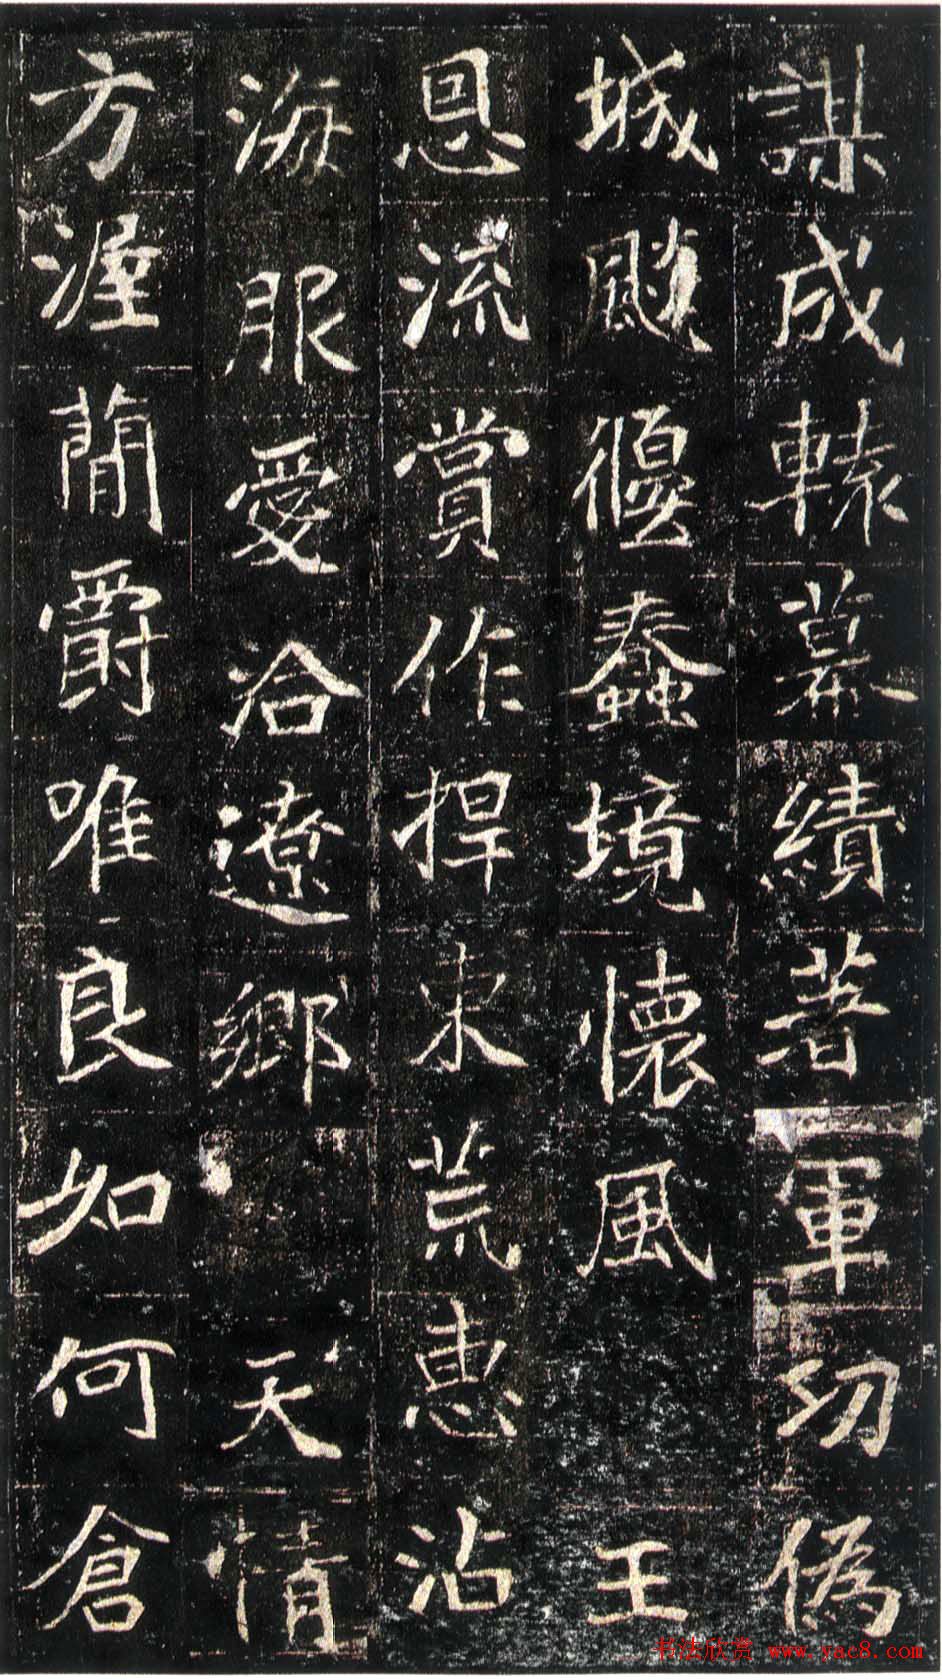 謀成轅幕績著軍功偽
城颷偃蠢境懷風王
恩流賞作捍東荒惠沾
海服愛洽遼鄉天情
方渥簡爵唯良如何倉
书法欣赏 www.yac8.com